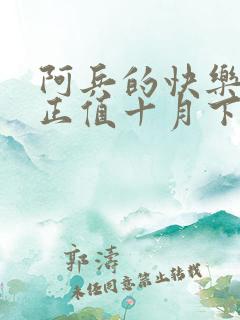 阿兵的快樂
正值十月下
郭濤
未经同意禁止转载